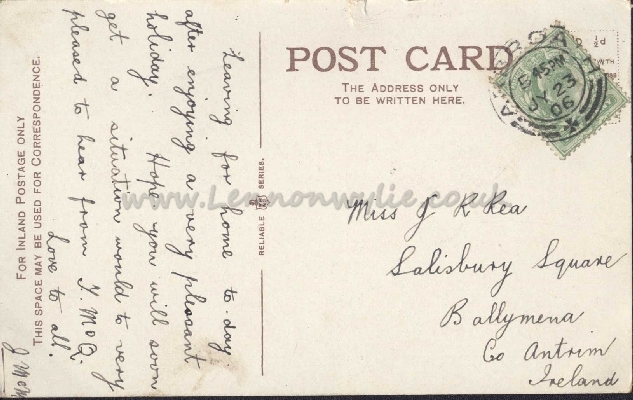 FOR INLAND POSTAGE ONLY
THIS SPACE MAY BE USED FOR CORRESPONDENCE.
Leaving for home to-day
after enjoying a very pleasant
holiday. Hope you will soon
get a situation would to very
pleased to hear from
Love to all.
RELIABLE SERIES.
POST CARD
THE ADDRESS ONLY
TO BE WRITTEN HERE.
5 45PM
23
06
Miss J K Rea
Salisbury Square
Ballymena
Co Antrim
Ireland
www.Lennonwylie.co.uk